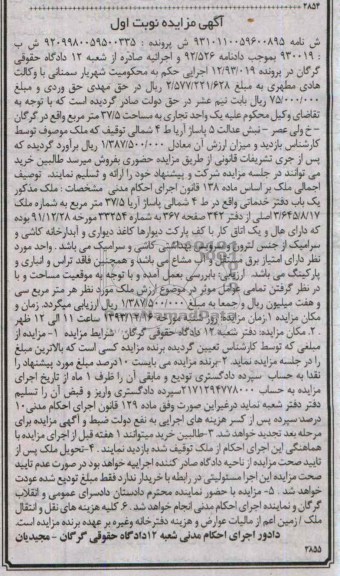 ۲۸۵۴
آگهی مزایده نوبت اول
ش نامه ۹۳۱۰۱۱۰۰۵۹۶۰۰۸۹۵ ش پرونده : ۹۲۰۹۹۸۰۰۵۹۵۰۰۳۳۵ ش ب
: ۹۳۰۰۱۹ بموجب دادنامه ۹۲/۵۲۶ و اجرائیه صادره از شعبه ۱۲ دادگاه حقوقی
گرگان در پرونده ۱۲/۹۳/۰۱۹ اجرایی حکم به محکومیت شهریار سمنانی با وکالت
هادی مطهری به مبلغ ۲/۵۷۷/۲۲۱/۶۲۸ ریال در حق مهدی حق وردی و مبلغ
۷۵/۰۰۰/۰۰۰ ریال بابت نیم عشر در حق دولت صادر گردیده است که با توجه به
تقاضای وکیل محکوم علیه یک واحد تجاری به مساحت ۳۷/۵ متر مربع واقع در گرگان
– خ ولی عصر – نبش عدالت ۵ پاساژ آریا ط ۴ شمالی توقیف که ملک موصوف توسط
کارشناس بازدید و میزان ارزش آن معادل ۱/۳۸۷/۵۰۰/۰۰۰ ریال برآورد گردیده که
پس از جری تشریفات قانونی از طریق مزایده حضوری بفروش میرسد طالبین خرید
می توانند در جلسه مزایده شرکت و پیشنهاد خود را ارائه و تسلیم نمایند. توصیف
اجمالی ملک بر اساس ماده ۱۳۸ قانون اجرای احکام مدنی مشخصات : ملک مذکور
یک باب دفتر خدماتی واقع در ط ۴ شمالی پاساژ آریا ۳۷/۵ متر مربع به شماره ملک
۳/۶۴۵/۸/۱۷ اصلی از دفتر ۳۴۲ صفحه ۳۶۷ به شماره ۳۳۲۵۴ مورخه ۹۱/۱۲/۲۸ بوده
که دارای هال و یک اتاق کار با کف پارکت دیوارها کاغذ دیواری و آبدارخانه کاشی و
سرامیک از جنس لترون و سرویس بهداشتی کاشی و سرامیک می باشد . واحد مورد
نظر دارای امتیاز برق مستقل و آب مشاع می باشد و همچنین فاقد تراس و انباری و
پارکینگ می باشد. ارزیابی: بابررسی بعمل آمده و با توجه به موقعیت مساحت و با
در نظر گرفتن تمامی عوامل موثر در موضوع ارزش ملک مورد نظر هر متر مربع سی
و هفت میلیون ریال و جمعا به مبلغ ۱/۳۸۷/۵۰۰/۰۰۰ ریال ارزیابی میگردد. زمان و
مکان مزایده ۱.زمان مزایده روز سه شنبه مورخه ۱۳۹۳/۴/۱۶ ساعت ۱۱ الی ۱۲ ظهر
. ۲. مکان مزایده: دفتر شعبه ۱۲ دادگاه حقوقی گرگان شرایط مزایده ۱- مزایده از
مبلغی که توسط کارشناس تعیین گردیده برنده مزایده کسی است که بالاترین مبلغ
را در جلسه مزایده نماید. ۲-برنده مزایده می بایست ۱۰درصد مبلغ مورد پیشنهاد را
نقدا به حساب سپرده دادگستری تودیع و مابقی آن را ظرف ۱ ماه از تاریخ اجرای
مزایده به حساب ۲۱۷۱۲۹۴۷۷۸۰۰۰سپرده دادگستری واریز و قبض آن را تسلیم
دفتر دفتر شعبه نماید درغیراین صورت وفق ماده ۱۲۹ قانون اجرای احکام مدنی ۱۰
درصدسپرده پس از کسر هزینه های اجرایی به نفع دولت ضبط و آگهی مزایده برای
مرحله بعد تجدید خواهد شد. ۳-طالبین خرید میتوانند ۱ هفته قبل از اجرای مزایده با
هماهنگی این اجرای احکام از ملک توقیف شده بازدید نمایند. ۴-تحویل ملک پس از
تایید صحت مزایده از ناحیه دادگاه صادر کننده اجراییه خواهد بود در صورت عدم تایید
صحت مزایده این اجرا مسئولیتی در رابطه با خریدار ندارد فقط مبلغ تودیع شده عودت
خواهد شد . ۵- مزایده با حضور نماینده محترم دادستان دادسرای عمومی و انقلاب
گرگان و نماینده اجرای احکام مدنی انجام خواهد شد. ۶. کلیه هزینه های نقل و انتقال
ملک / زمین اعم از مالیات عوارض و هزینه دفترخانه وغیره بر عهده برنده مزایده است.
دادور اجرای احکام مدنی شعبه ۱۲دادگاه حقوقی گرگان – مجیدیان
۲۸۵۵